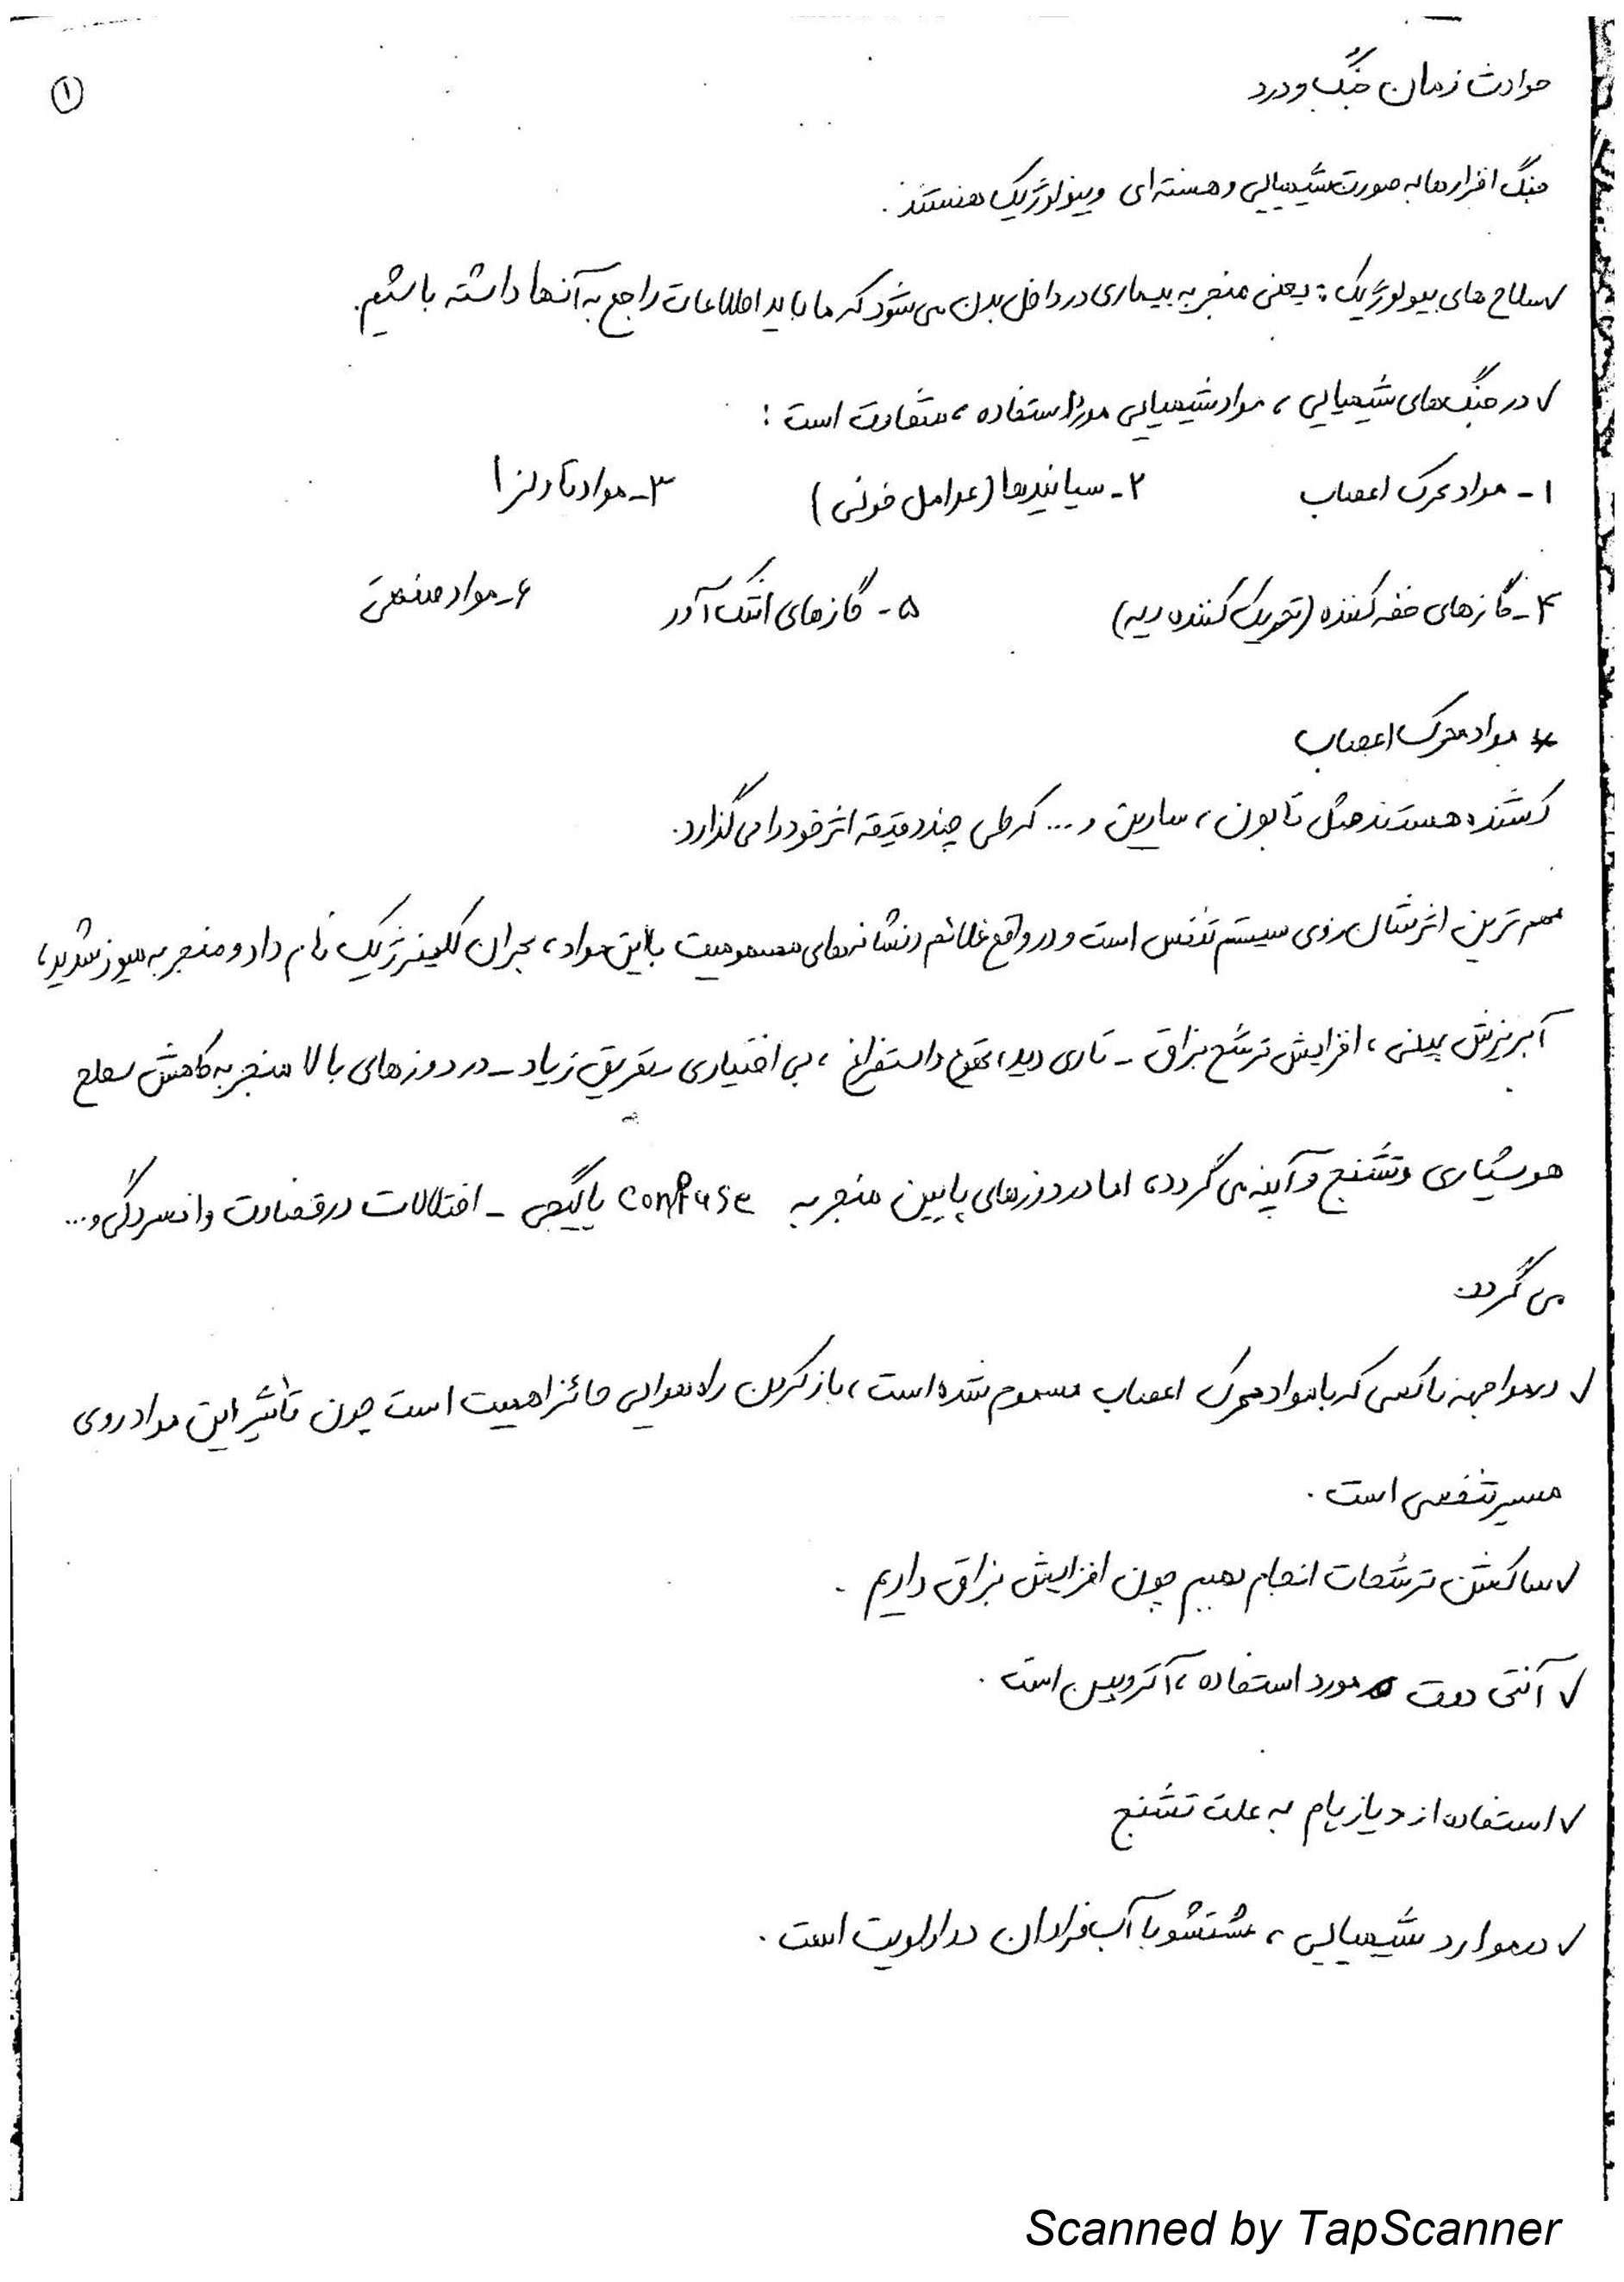 ۱
حوادث زمان جنگ و درد
جنگ افزارها به صورت شیمیایی و هسته ای و بیولوژیک هستند.
✓ سلاح های بیولوژیک: یعنی منجر به بیماری در داخل بدن می شود که ما باید اطلاعات راجع به آنها داشته باشیم.
✓ در جنگ های شیمیایی، مواد شیمیایی مورد استفاده، متفاوت است:
۱- مواد محرک اعصاب ۲- سیانیدها (عوامل خونی) ۳- مواد تاول زا
۴- گازهای خفه کننده (تحریک کننده ریه) ۵- گازهای اشک آور ۶- مواد صنعتی
* مواد محرک اعصاب
کشنده هستند مثل تابون، سارین و ... که طی چند دقیقه اثر خود را می گذارد.
مهم ترین اثرشان روی سیستم تنفس است و در واقع علائم و نشانه های مسمومیت با این مواد، بحران کلینرژیک نام دارد و منجر به میوز شدید،
آبریزش بینی، افزایش ترشح بزاق - تاری دید، تهوع و استفراغ، بی اختیاری - تعریق زیاد - در دوزهای بالا منجر به کاهش سطح
هوشیاری و تشنج و آپنه می گردد، اما در دوزهای پایین منجر به confuse یا گیجی - اختلالات در قضاوت و افسردگی و...
می گردد.
✓ در مواجهه با کسی که با مواد محرک اعصاب مسموم شده است، باز کردن راه هوایی حائز اهمیت است چون تأثیر این مواد روی
مسیر تنفسی است.
✓ ساکشن ترشحات انجام دهیم چون افزایش بزاق داریم.
✓ آنتی دوت مورد استفاده، آتروپین است.
✓ استفاده از دیازپام به علت تشنج
✓ در موارد شیمیایی، شستشو با آب فراوان در اولویت است.
Scanned by TapScanner